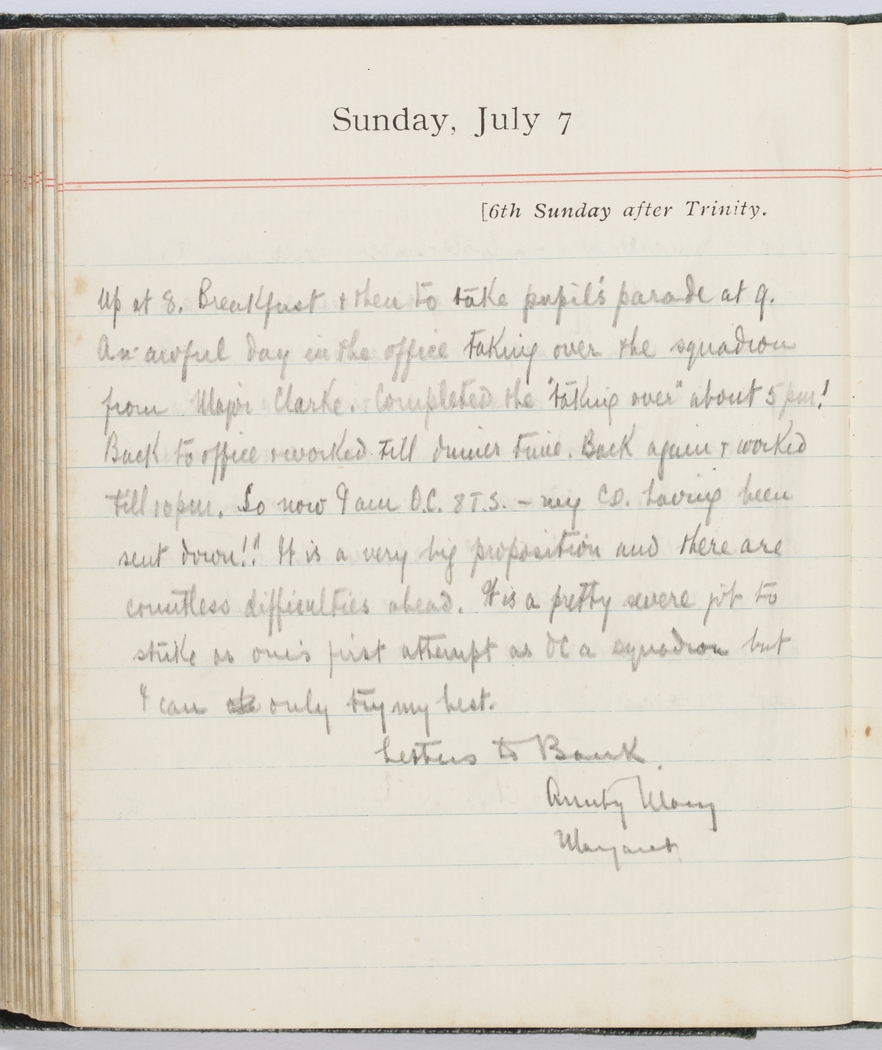 Sunday, July 7
[6th Sunday after Trinity.
Up at 8. Breakfast + then to take pupil's parade at 9.
An awful day in the office taking over the squadron
from Major Clarke. Completed the "taking over" about 5 pm!
Back to office + worked till dinner time. Back again + worked
till 10 pm. So now I am O.C. 8 T.S. – my C.O. having been
sent down!! It is a very big proposition and there are
countless difficulties ahead. It is a pretty severe job to
strike as one's first attempt as OC a squadron but
I can only try my best.
Letters to Bank.
Aunty Mary
Margaret